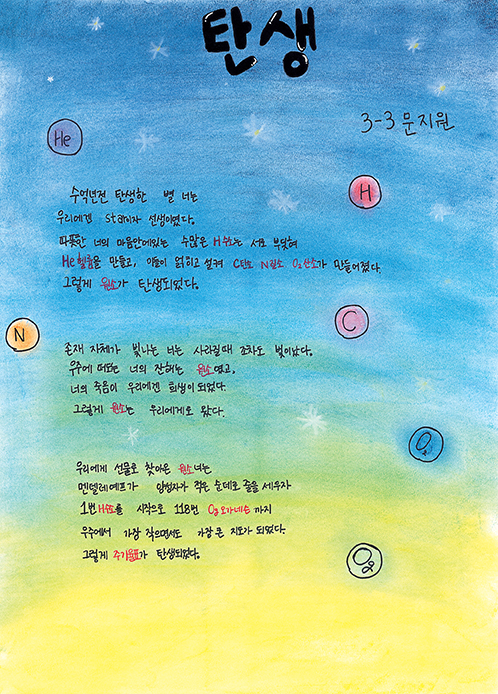 탄생
3-3 문지원
He
H
수억년전 탄생한 별 너는
우리에겐 star이자 선생이였다.
따뜻한 너의 마음안에있는 수많은 H수소는 서로 부딪혀
He헬륨을 만들고, 이들이 얽히고 설켜 C탄소 N질소 O₂산소가 만들어졌다.
그렇게 원소가 탄생되었다.
N
C
존재 자체가 빛나는 너는 사라질때 조차도 빛이났다.
우주에 떠도는 너의 잔해는 원소였고,
너의 죽음이 우리에겐 희생이 되었다.
그렇게 원소는 우리에게로 왔다.
O₂
우리에게 선물로 찾아온 원소너는
멘델레예프가 양성자가 적은 순데로 줄을 세우자
1번 H수소를 시작으로 118번 Og오가네손 까지
우주에서 가장 작으면서도 가장 큰 지도가 되었다.
그렇게 주기율표가 탄생되었다.
Og